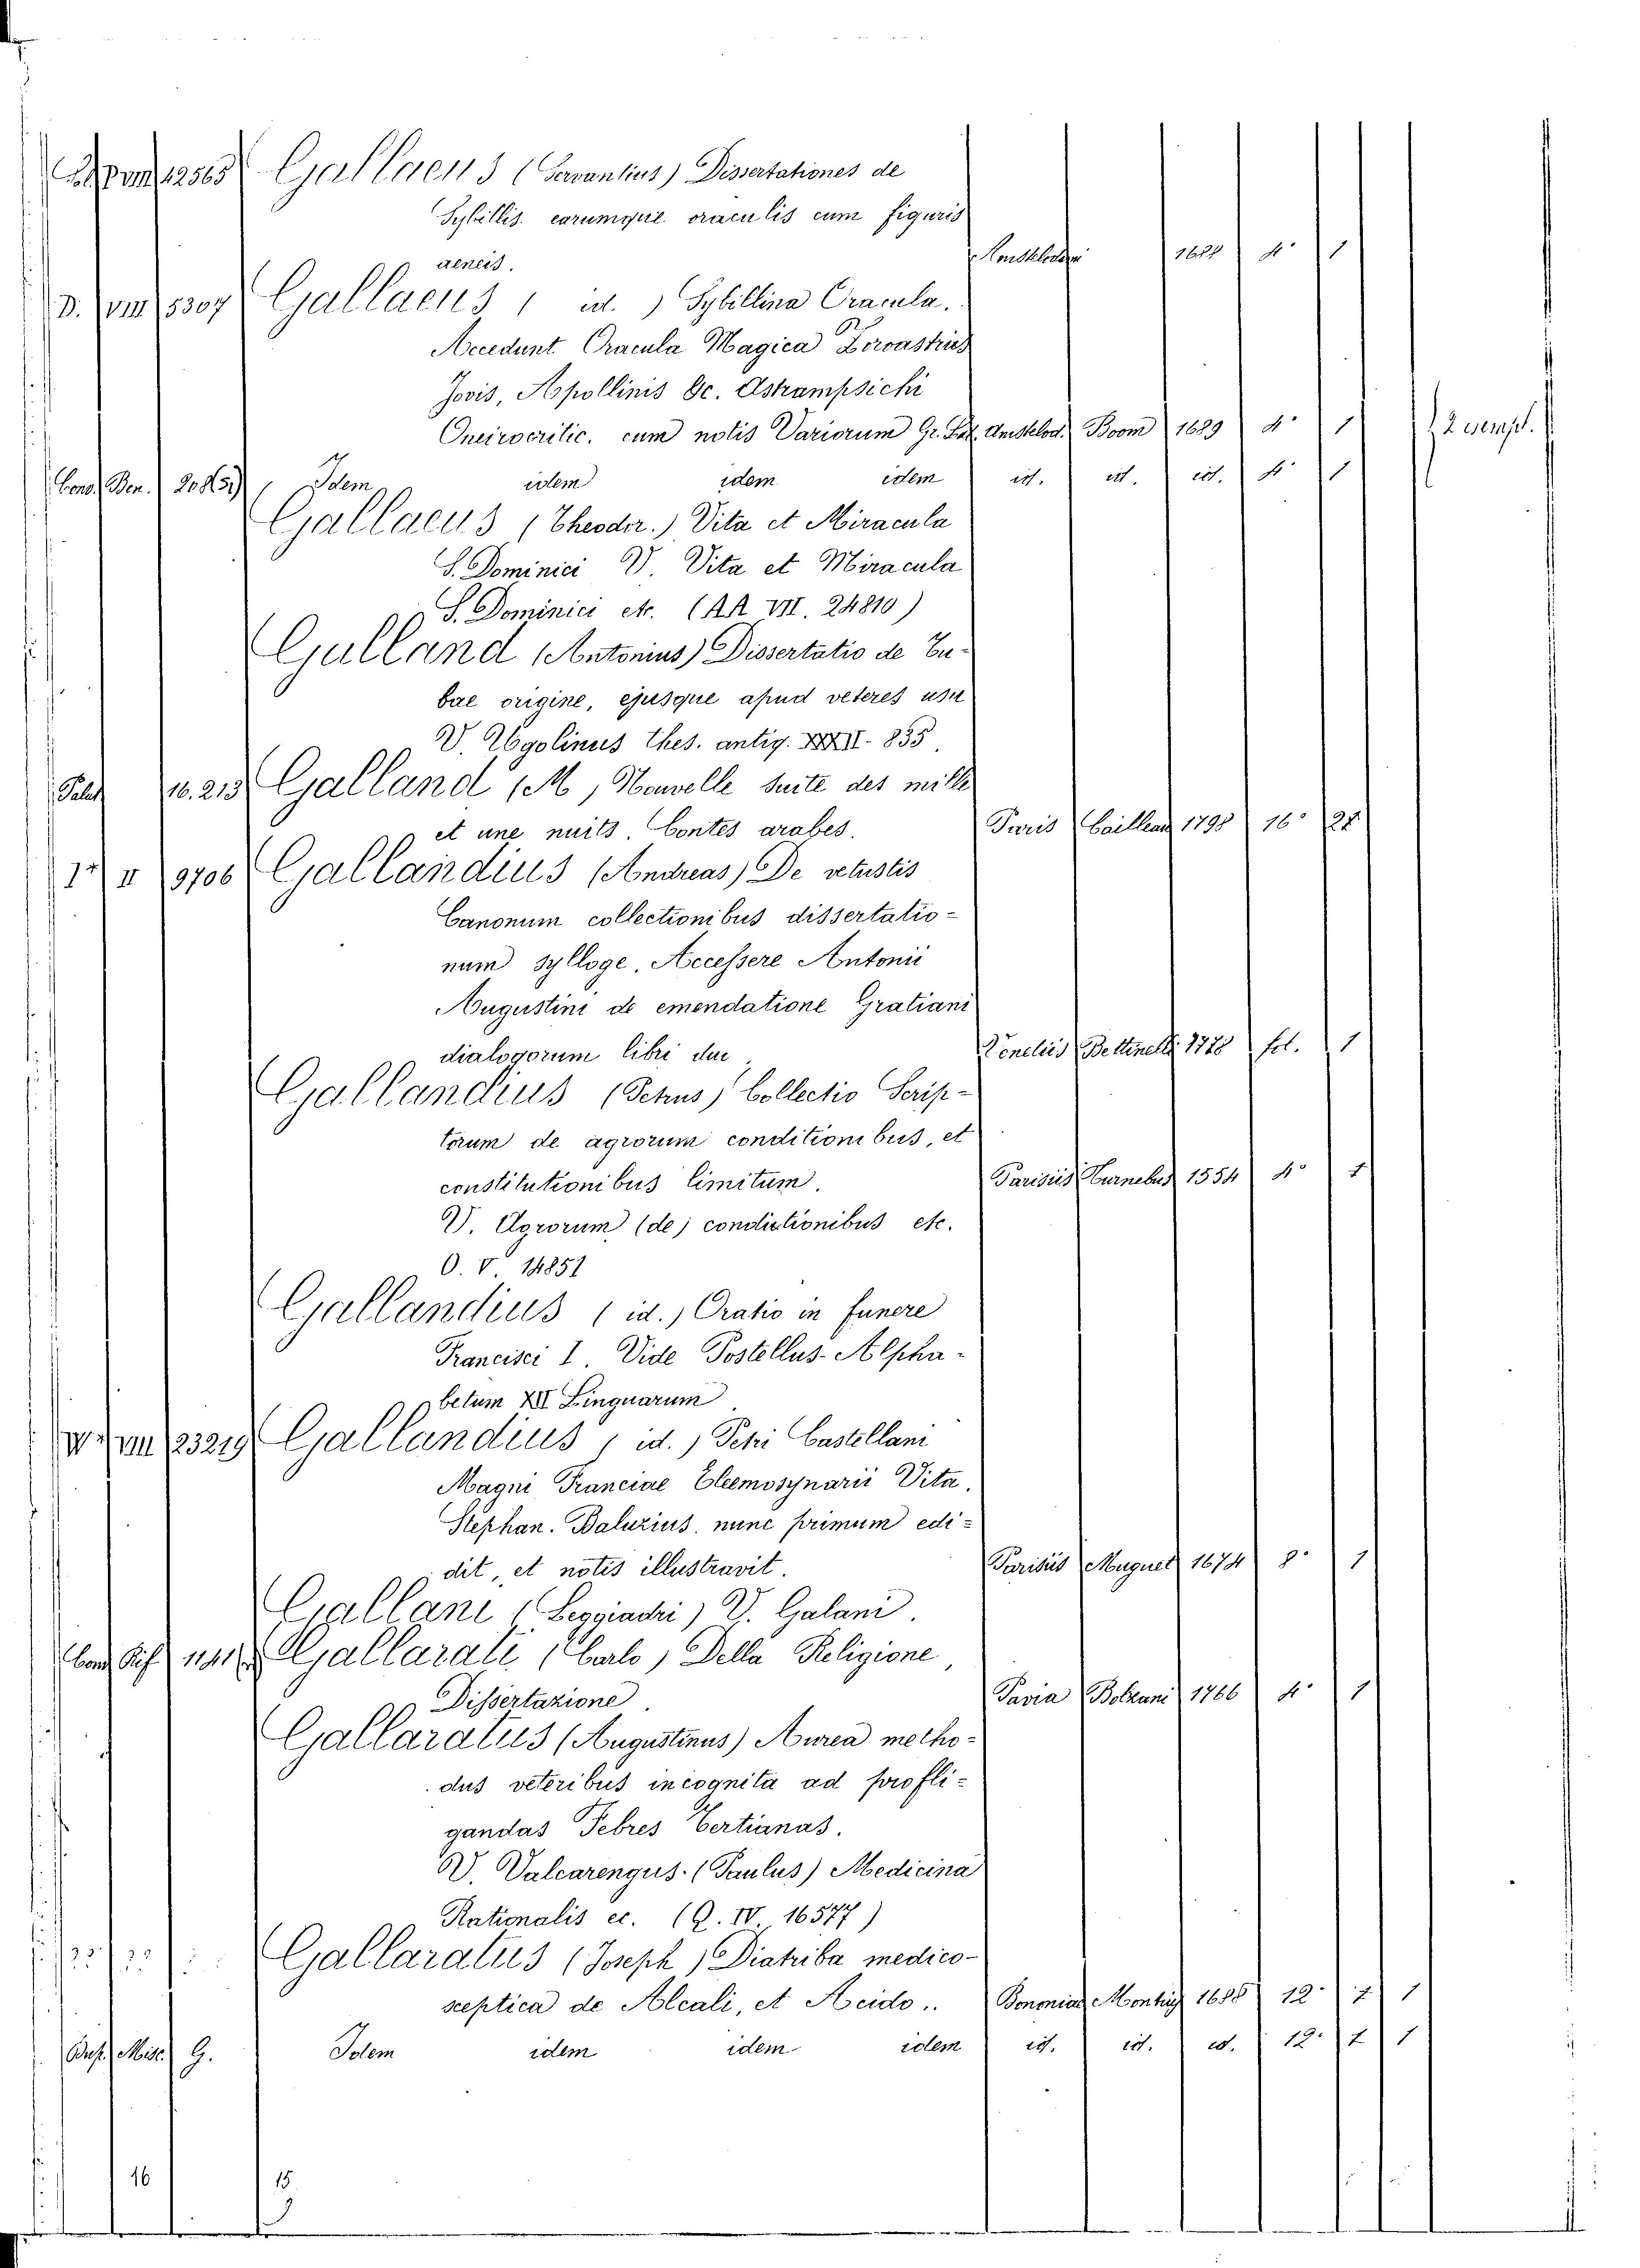 VIII 12565 Gallaeus (Servantius) Dissertationes de
Sybillis earumque oraculis cum figuris
aeneis. Amstelodami 1688 4° 1
D. VIII 5307 Gallaeus ( id. ) Sybillina Oracula.
Accedunt Oracula Magica Zoroastris
Jovis, Apollinis &c. Astrampsichi
Oneirocritic. cum notis Variorum Gr. Lat. Amstelod. Boom 1689 4° 1 2 esempl.
Cons. Ben. 2085 Idem idem idem idem id. id. id. 4° 1
Gallaeus (Theodor.) Vita et Miracula
S. Dominici V. Vita et Miracula
S. Dominici etc. (AA VII. 24810)
Galland (Antonius) Dissertatio de Tu-
bae origine, ejusque apud veteres usu
V. Ugolinus Thes. antiq. XXXII. 835.
Palat 16. 213 Galland (M) Nouvelle suite des mille
et une nuits. Contes arabes. Paris Cailleau 1798 16°
II 9706 Gallandius (Andreas) De vetustis
Canonum collectionibus dissertatio-
num sylloge. Accessere Antonii
Augustini de emendatione Gratiani
dialogorum libri duo. Venetiis Bettinelli 1778 fol. 1
Gallandius (Petrus) Collectio Scrip-
torum de agrorum conditionibus, et
constitutionibus limitum. Parisiis Turnebus 1554 4° 1
V. Agrorum (de) condictionibus etc.
O. V. 14851
Gallandius ( id. ) Oratio in funere
Francisci I. Vide Postellus Alpha-
betum XII Linguarum
VIII 23219 Gallandius ( id. ) Petri Castellani
Magni Franciae Eleemosynarii Vita.
Stephan. Baluzius nunc primum edi-
dit, et notis illustravit. Parisiis Muguet 1674 8° 1
Gallani (Leggiadri) V. Galani.
Gallarati (Carlo) Della Religione,
Dissertazione. Pavia Bolzani 1766 4° 1
Gallaratus (Augustinus) Aurea metho-
dus veteribus incognita ad profli-
gandas Febres Tertianas.
V. Valcarengus (Paulus) Medicina
Rationalis ec. (Q. IV. 16577)
Gallaratus (Joseph) Diatriba medico-
sceptica de Alcali, et Acido.. Bononiae 1688 12° 1
Misc. G. Idem idem idem idem id. id. id. 12° 1
16 15